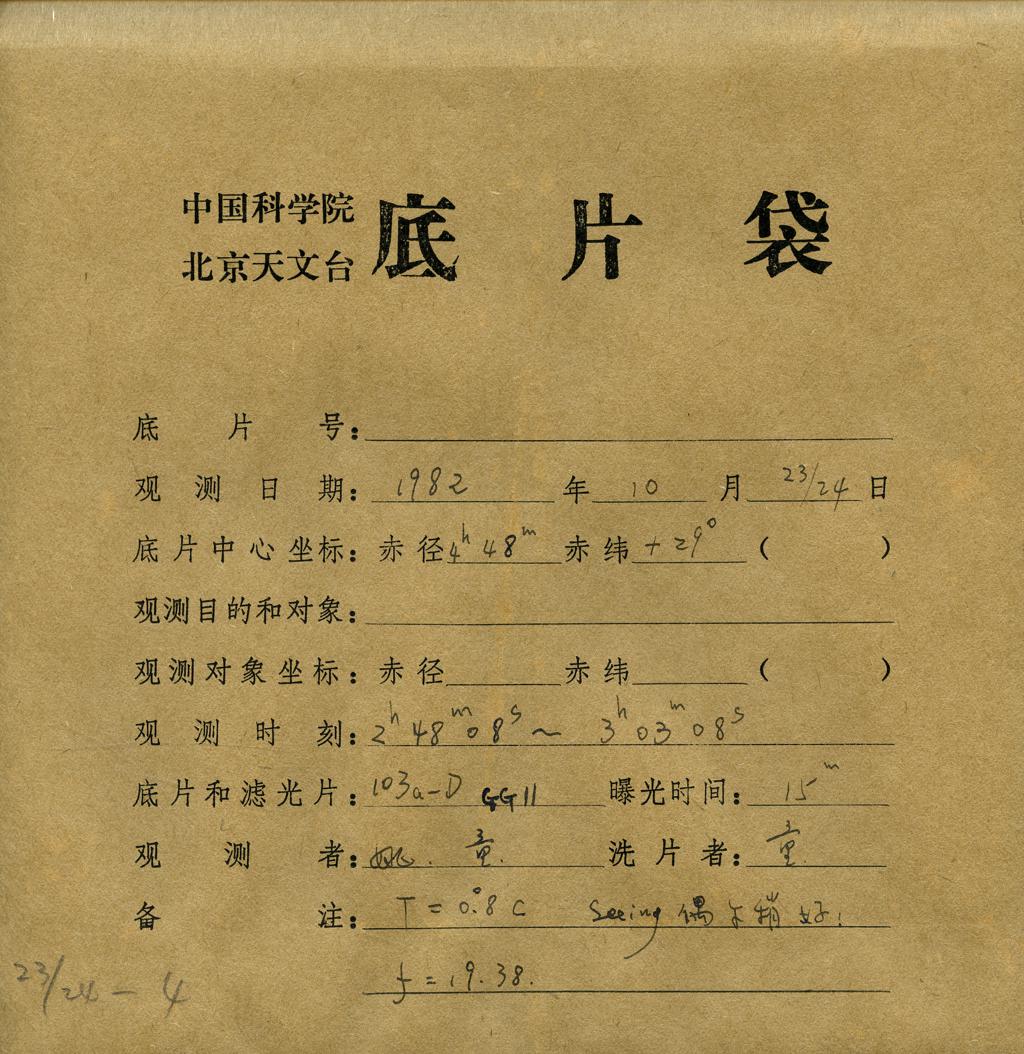 中国科学院
北京天文台 底片袋
底片号：
观测日期：1982年10月23/24日
底片中心坐标：赤径4h48m赤纬+29°（ ）
观测目的和对象：
观测对象坐标：赤径 赤纬 （ ）
观测时刻：2h48m08s～3h03m08s
底片和滤光片：103a-D GG11 曝光时间：15m
观测者：姚.童. 洗片者：童.
备注：T=0.°8C seeing偶尔稍好！
f=19.38.
23/24-4